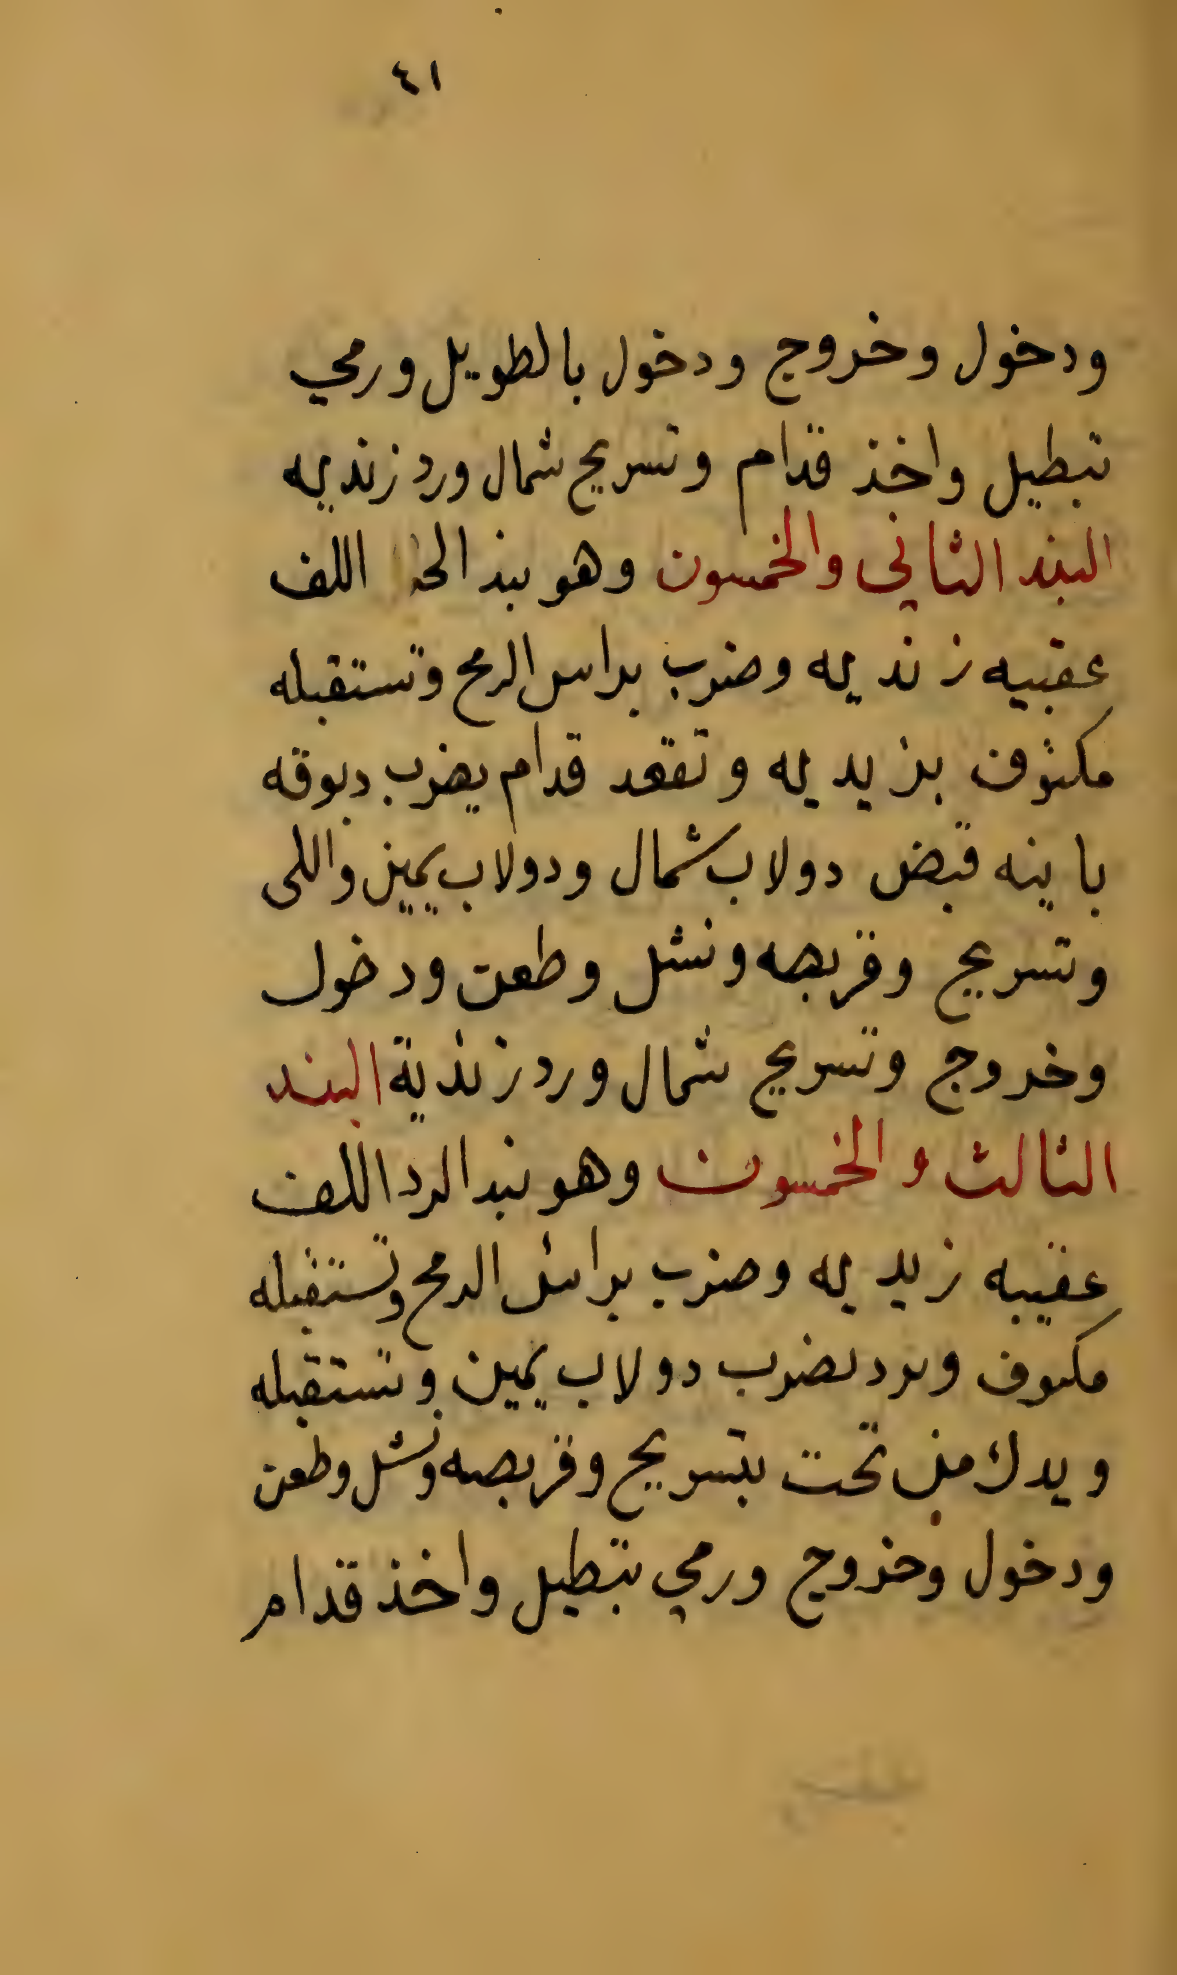 ٤١
ودخول وخروج ودخول بالطويل ورمي
تبطيل واخذ قدام وتسريح شمال ورد زنديه
البند الثاني والخمسون وهو بند اللف
عقبيه زنديه وضرب براس الرمح وتستقبله
مكثوف بزيديه وتقعد قدام يضرب دبوقه
باينه قبض دولاب شمال ودولاب يمين واللى
وتسريح وقربصه ونشل وطعن ودخول
وخروج وتسريح شمال ورد زندية البند
الثالث والخمسون وهو بند الرد اللف
عقيبه زيديه وضرب براس الرمح وتستقبله
مكتوف وترد بضرب دولاب يمين وتستقبله
ويدك من تحت بتسريح وقربصه ونشل وطعن
ودخول وخروج ورمي بتبطيل واخذ قدام